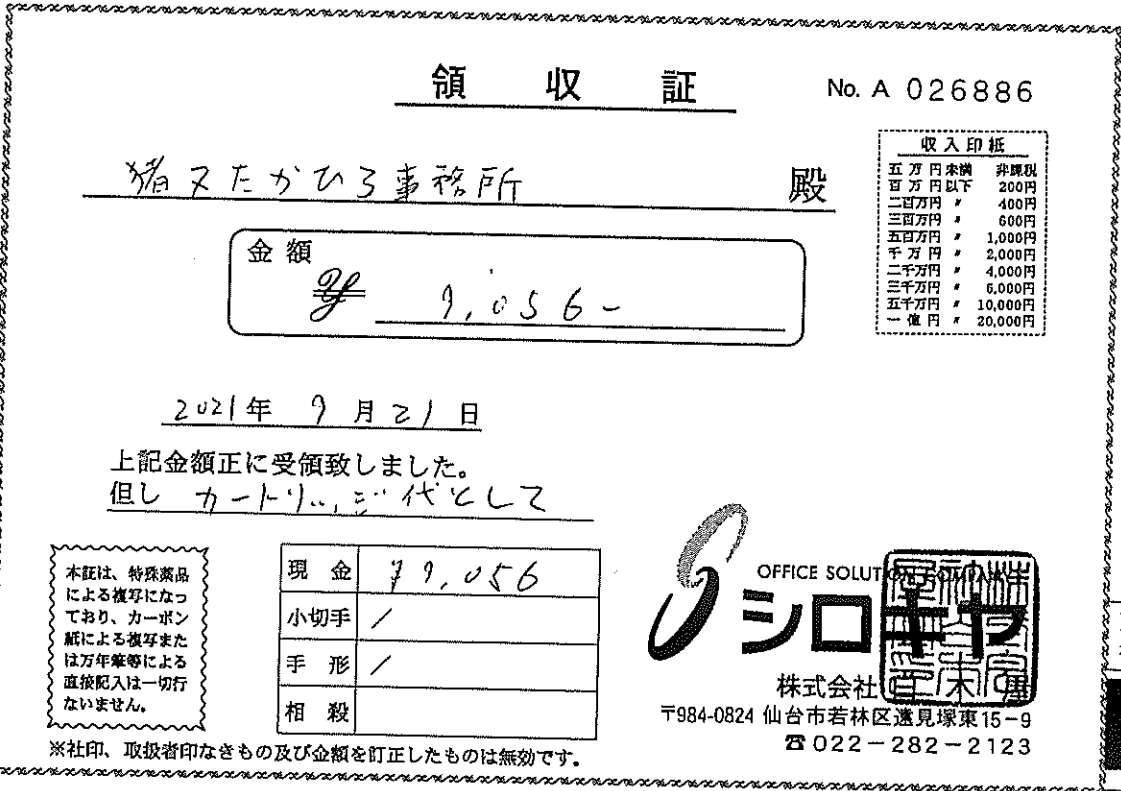 領収証
No. A 026886
猪又たかひろ事務所 殿
収入印紙
五万円未満 非課税
百万円以下 200円
二百万円 〃 400円
三百万円 〃 600円
五百万円 〃 1,000円
千万円 〃 2,000円
二千万円 〃 4,000円
三千万円 〃 6,000円
五千万円 〃 10,000円
一億円 〃 20,000円
金額
¥ 9,056-
2021年 9月21日
上記金額正に受領致しました。
但し カートリッジ代として
本証は、特殊薬品
による複写になっ
ており、カーボン
紙による複写また
は万年筆等による
直接記入は一切行
ないません。
現金 ¥9,056
小切手 /
手形 /
相殺
OFFICE SOLUTION COMPANY
シロキヤ
株式会社 白木屋
〒984-0824 仙台市若林区遠見塚東15-9
☎022-282-2123
※社印、取扱者印なきもの及び金額を訂正したものは無効です。